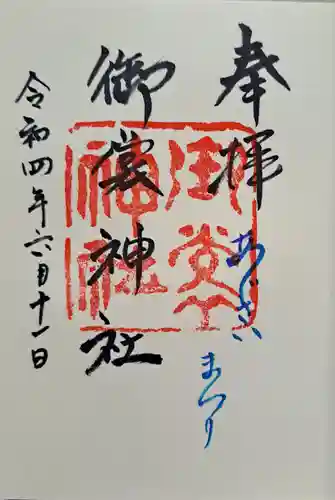 奉拝
あじさい
まつり
御裳神社
令和四年六月十一日